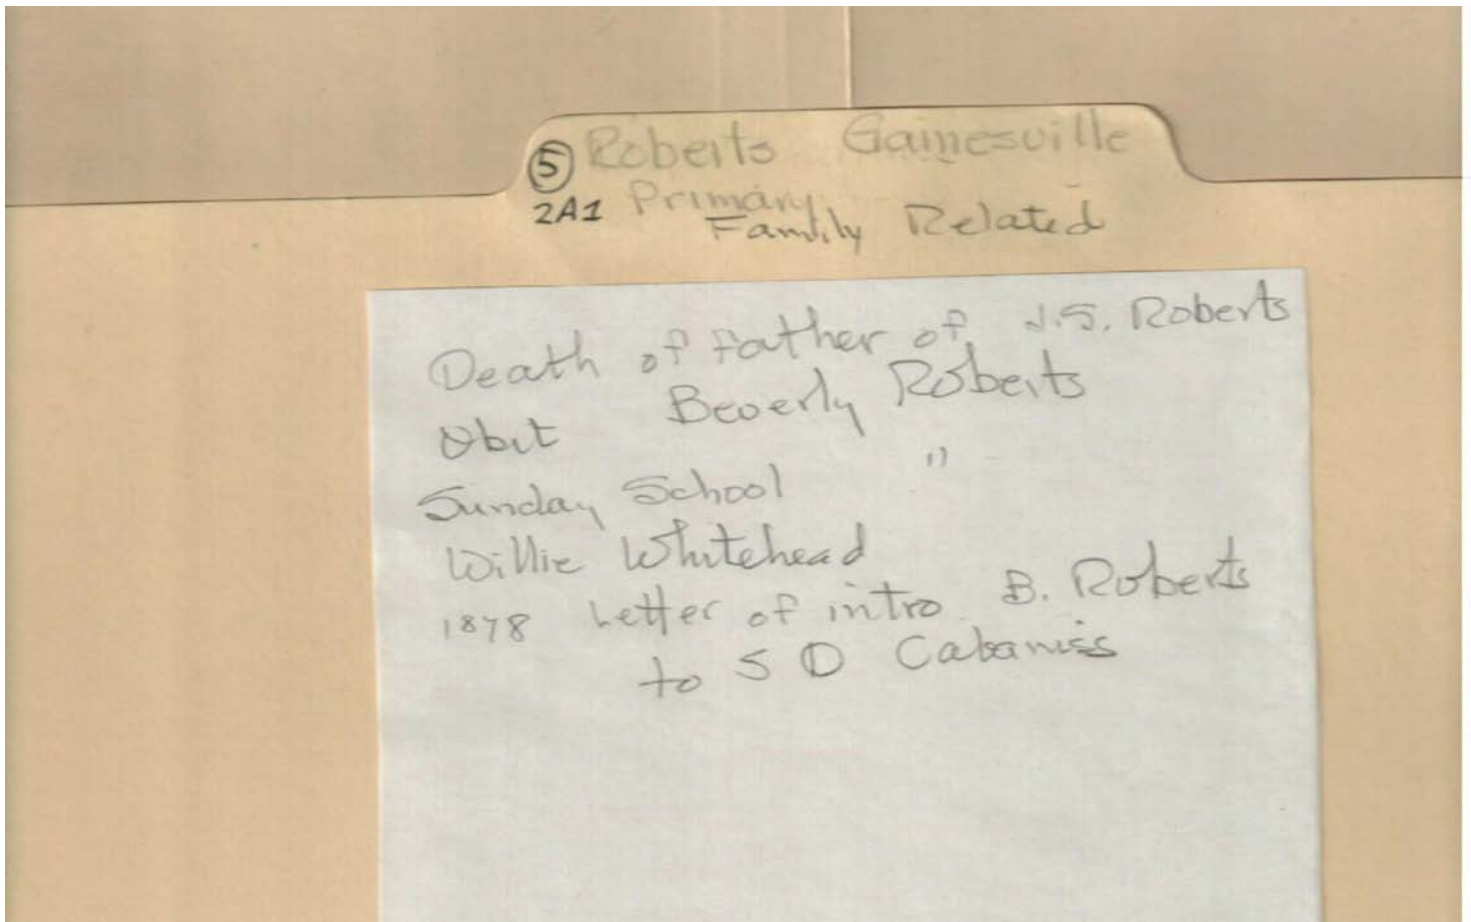 ⑤ Roberts Gainesville
2A1 Primary
Family Related
Death of father of J.S. Roberts
Obit Beverly Roberts
Sunday School "
Willie Whitehead
1878 Letter of intro B. Roberts
to S D Cabaniss